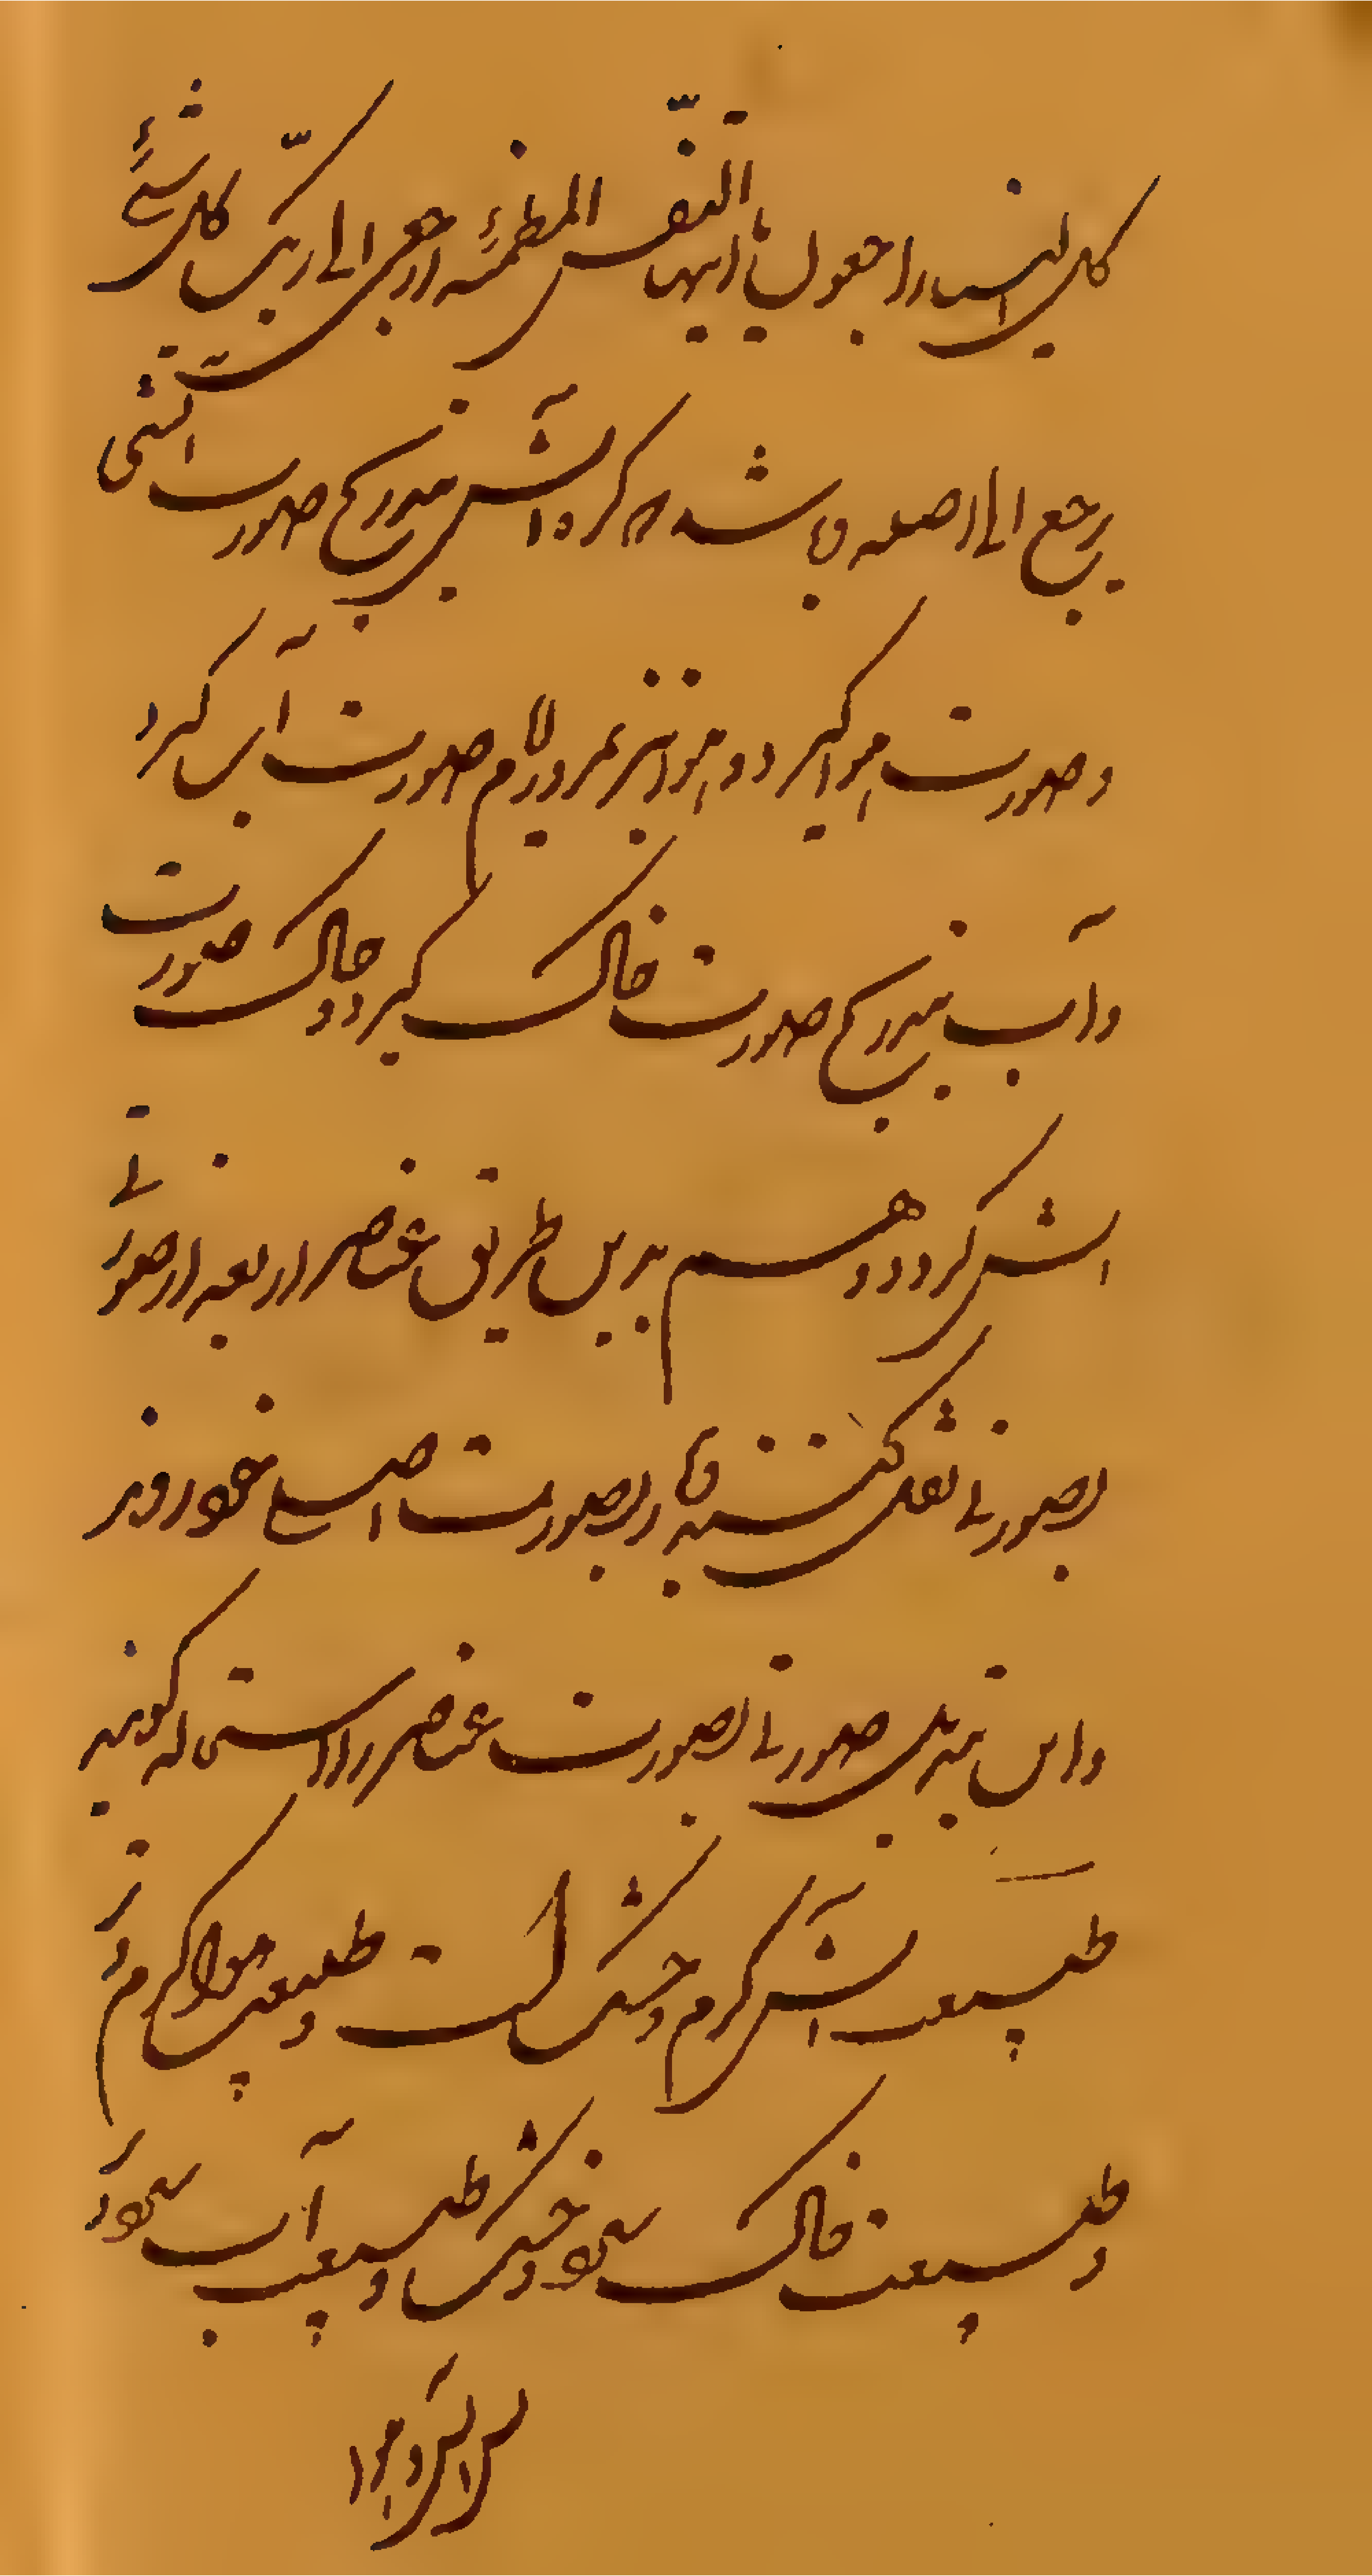 کل الینا راجعون یا ایتها النفس المطمئنه ارجعی الی ربک کل شئ
یرجع الی اصله فا شد ه کره آتش بتدریج صورت آتشی
و صورت هوا گیرد و هوا نیز بمرور ایام صورت آب گیرد
و آب بتدریج صورت خاک گیرد و خاک صورت
اتش گردد و هم بدین طریق عناصر اربعه از صورتی
بصورتی نقل کنند و باز بصورت اصلی خود روند
و این تبدیل صورتی بصورت عناصر را استحاله گویند
طبیعت آتش گرم و خشک است و طبیعت هوا گرم و تر
و طبیعت خاک سرد و خشک و طبیعت آب سرد و تر
پس آتش و هوا